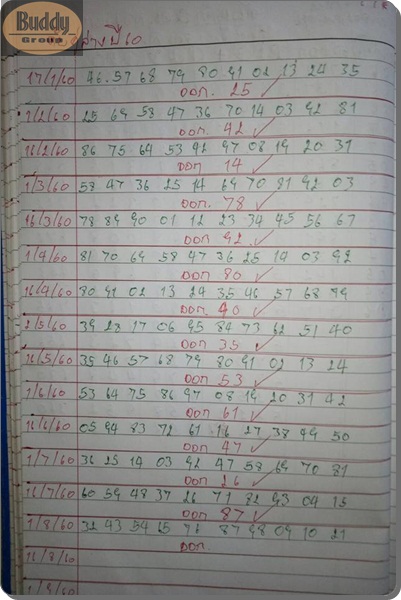 Buddy
Group
ปี 60
17/1/60 46 57 68 79 80 91 02 13 24 35
ออก. 25
1/2/60 25 69 58 47 36 70 14 03 92 81
ออก. 42
16/2/60 86 75 64 53 92 97 08 19 20 31
ออก 14
1/3/60 58 47 36 25 14 69 70 81 92 03
ออก. 78
16/3/60 78 89 90 01 12 23 34 45 56 67
ออก 92
1/4/60 81 70 69 58 47 36 25 14 03 92
ออก 80
16/4/60 80 91 02 13 24 35 46 57 68 79
ออก. 90
2/5/60 39 28 17 06 95 84 73 62 51 40
ออก 35
16/5/60 35 46 57 68 79 80 91 02 13 24
ออก 53
1/6/60 53 64 75 86 97 08 19 20 31 42
ออก 61
16/6/60 05 94 83 72 61 16 27 38 49 50
ออก 47
1/7/60 36 25 14 03 92 47 58 69 70 81
ออก 26
16/7/60 60 59 48 37 26 71 82 93 04 15
ออก 87
1/8/60 32 43 54 65 76 87 98 09 10 21
ออก.
16/8/60